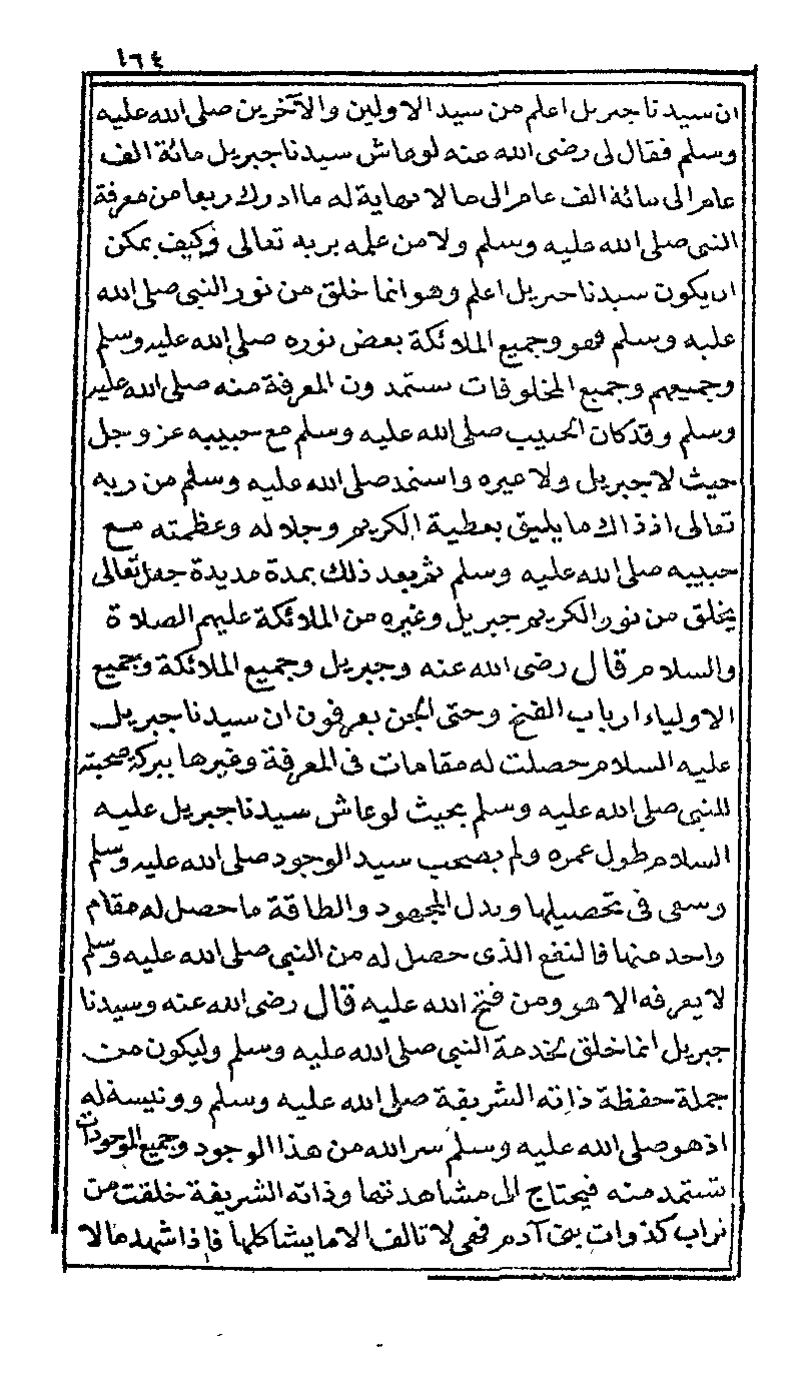 ١٦٤
ان سيدنا جبريل اعلم من سيد الاولين والآخرين صلى الله عليه
وسلم فقال لى رضى الله عنه لو عاش سيدنا جبريل مائة الف
عام الى مائة الف عام الى ما لا نهاية له ما ادرك ربعا من معرفة
النبى صلى الله عليه وسلم ولا من علمه بربه تعالى وكيف يمكن
ان يكون سيدنا جبريل اعلم وهو انما خلق من نور النبى صلى الله
عليه وسلم فهو وجميع الملائكة بعض نوره صلى الله عليه وسلم
وجميعهم وجميع المخلوقات يستمدون المعرفة منه صلى الله عليه
وسلم وقد كان الحبيب صلى الله عليه وسلم مع حبيبه عز وجل
حيث لا جبريل ولا غيره واستمد صلى الله عليه وسلم من ربه
تعالى اذ ذاك ما يليق بعطية الكريم وجلاله وعظمته مع
حبيبه صلى الله عليه وسلم ثم بعد ذلك بمدة مديدة جعل تعالى
يخلق من نور الكريم جبريل وغيره من الملائكة عليهم الصلاة
والسلام قال رضى الله عنه وجبريل وجميع الملائكة وجميع
الاولياء ارباب الفتح وحتى الجن يعرفون ان سيدنا جبريل
عليه السلام حصلت له مقامات فى المعرفة وغيرها ببركة صحبته
للنبى صلى الله عليه وسلم بحيث لو عاش سيدنا جبريل عليه
السلام طول عمره ولم يصحب سيد الوجود صلى الله عليه وسلم
وسعى فى تحصيلها وبذل المجهود والطاقة ما حصل له مقام
واحد منها فالنفع الذى حصل له من النبى صلى الله عليه وسلم
لا يعرفه الا هو ومن فتح الله عليه قال رضى الله عنه وسيدنا
جبريل انما خلق لخدمة النبى صلى الله عليه وسلم وليكون من
جملة حفظة ذاته الشريفة صلى الله عليه وسلم وونيسة له
اذ هو صلى الله عليه وسلم سر الله من هذا الوجود وجميع الموجودات
تستمد منه فيحتاج الى مشاهدتها وذاته الشريفة خلقت من
تراب كذوات بنى آدم فهى لا تالف الا ما يشاكلها فاذا شهد مالا